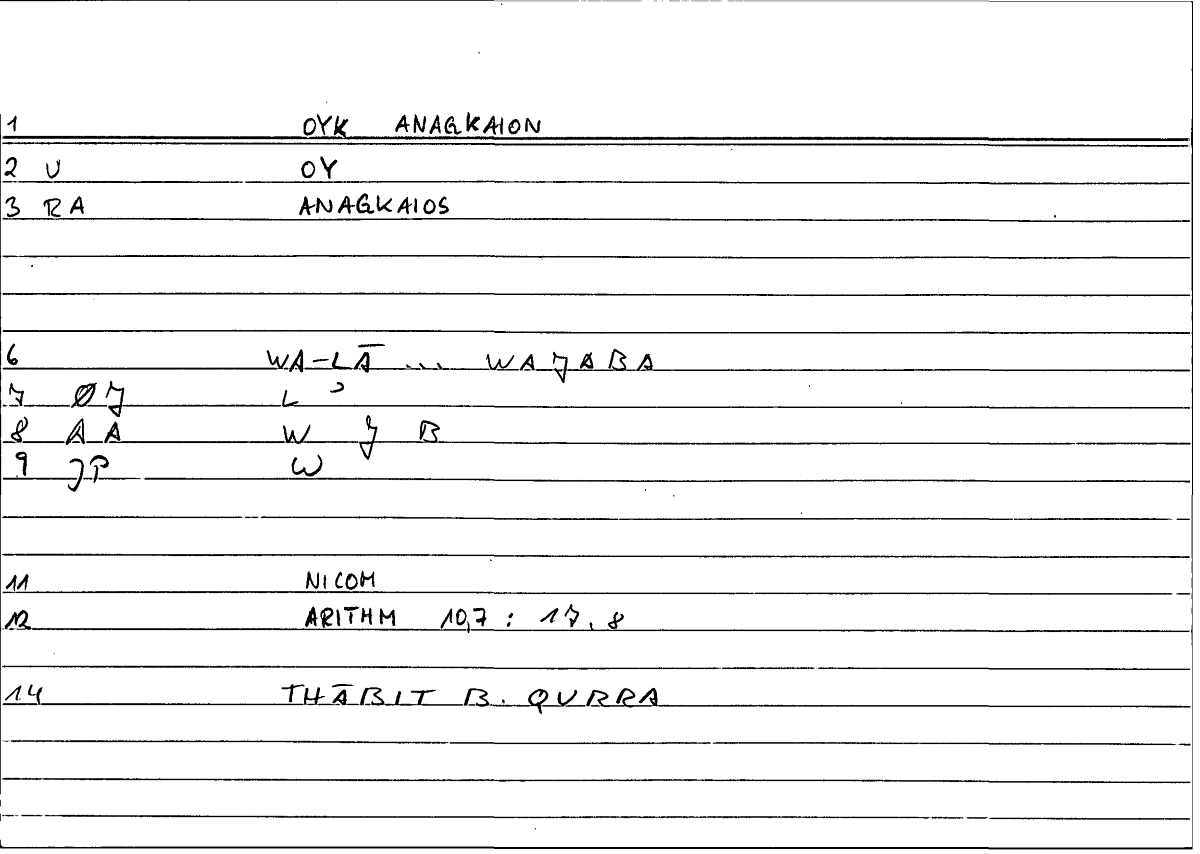 1 OYK ANAGKAION
2 U OY
3 RA ANAGKAIOS
6 WA-LĀ ... WAJABA
7 ØJ L ʾ
8 AA W J B
9 JP W
11 NICOM
12 ARITHM 10,7 : 17,8
14 THĀBIT B. QURRA